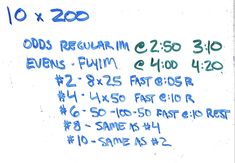 10 x 200
ODDS REGULAR IM @ 2:50 3:10
EVENS - FLYIM @ 4:00 4:20
#2 - 8x25 FAST @:05 R
#4 - 4x50 FAST @:10 R
#6 - 50-100-50 FAST @:10 REST
#8 - SAME AS #4
#10 - SAME AS #2